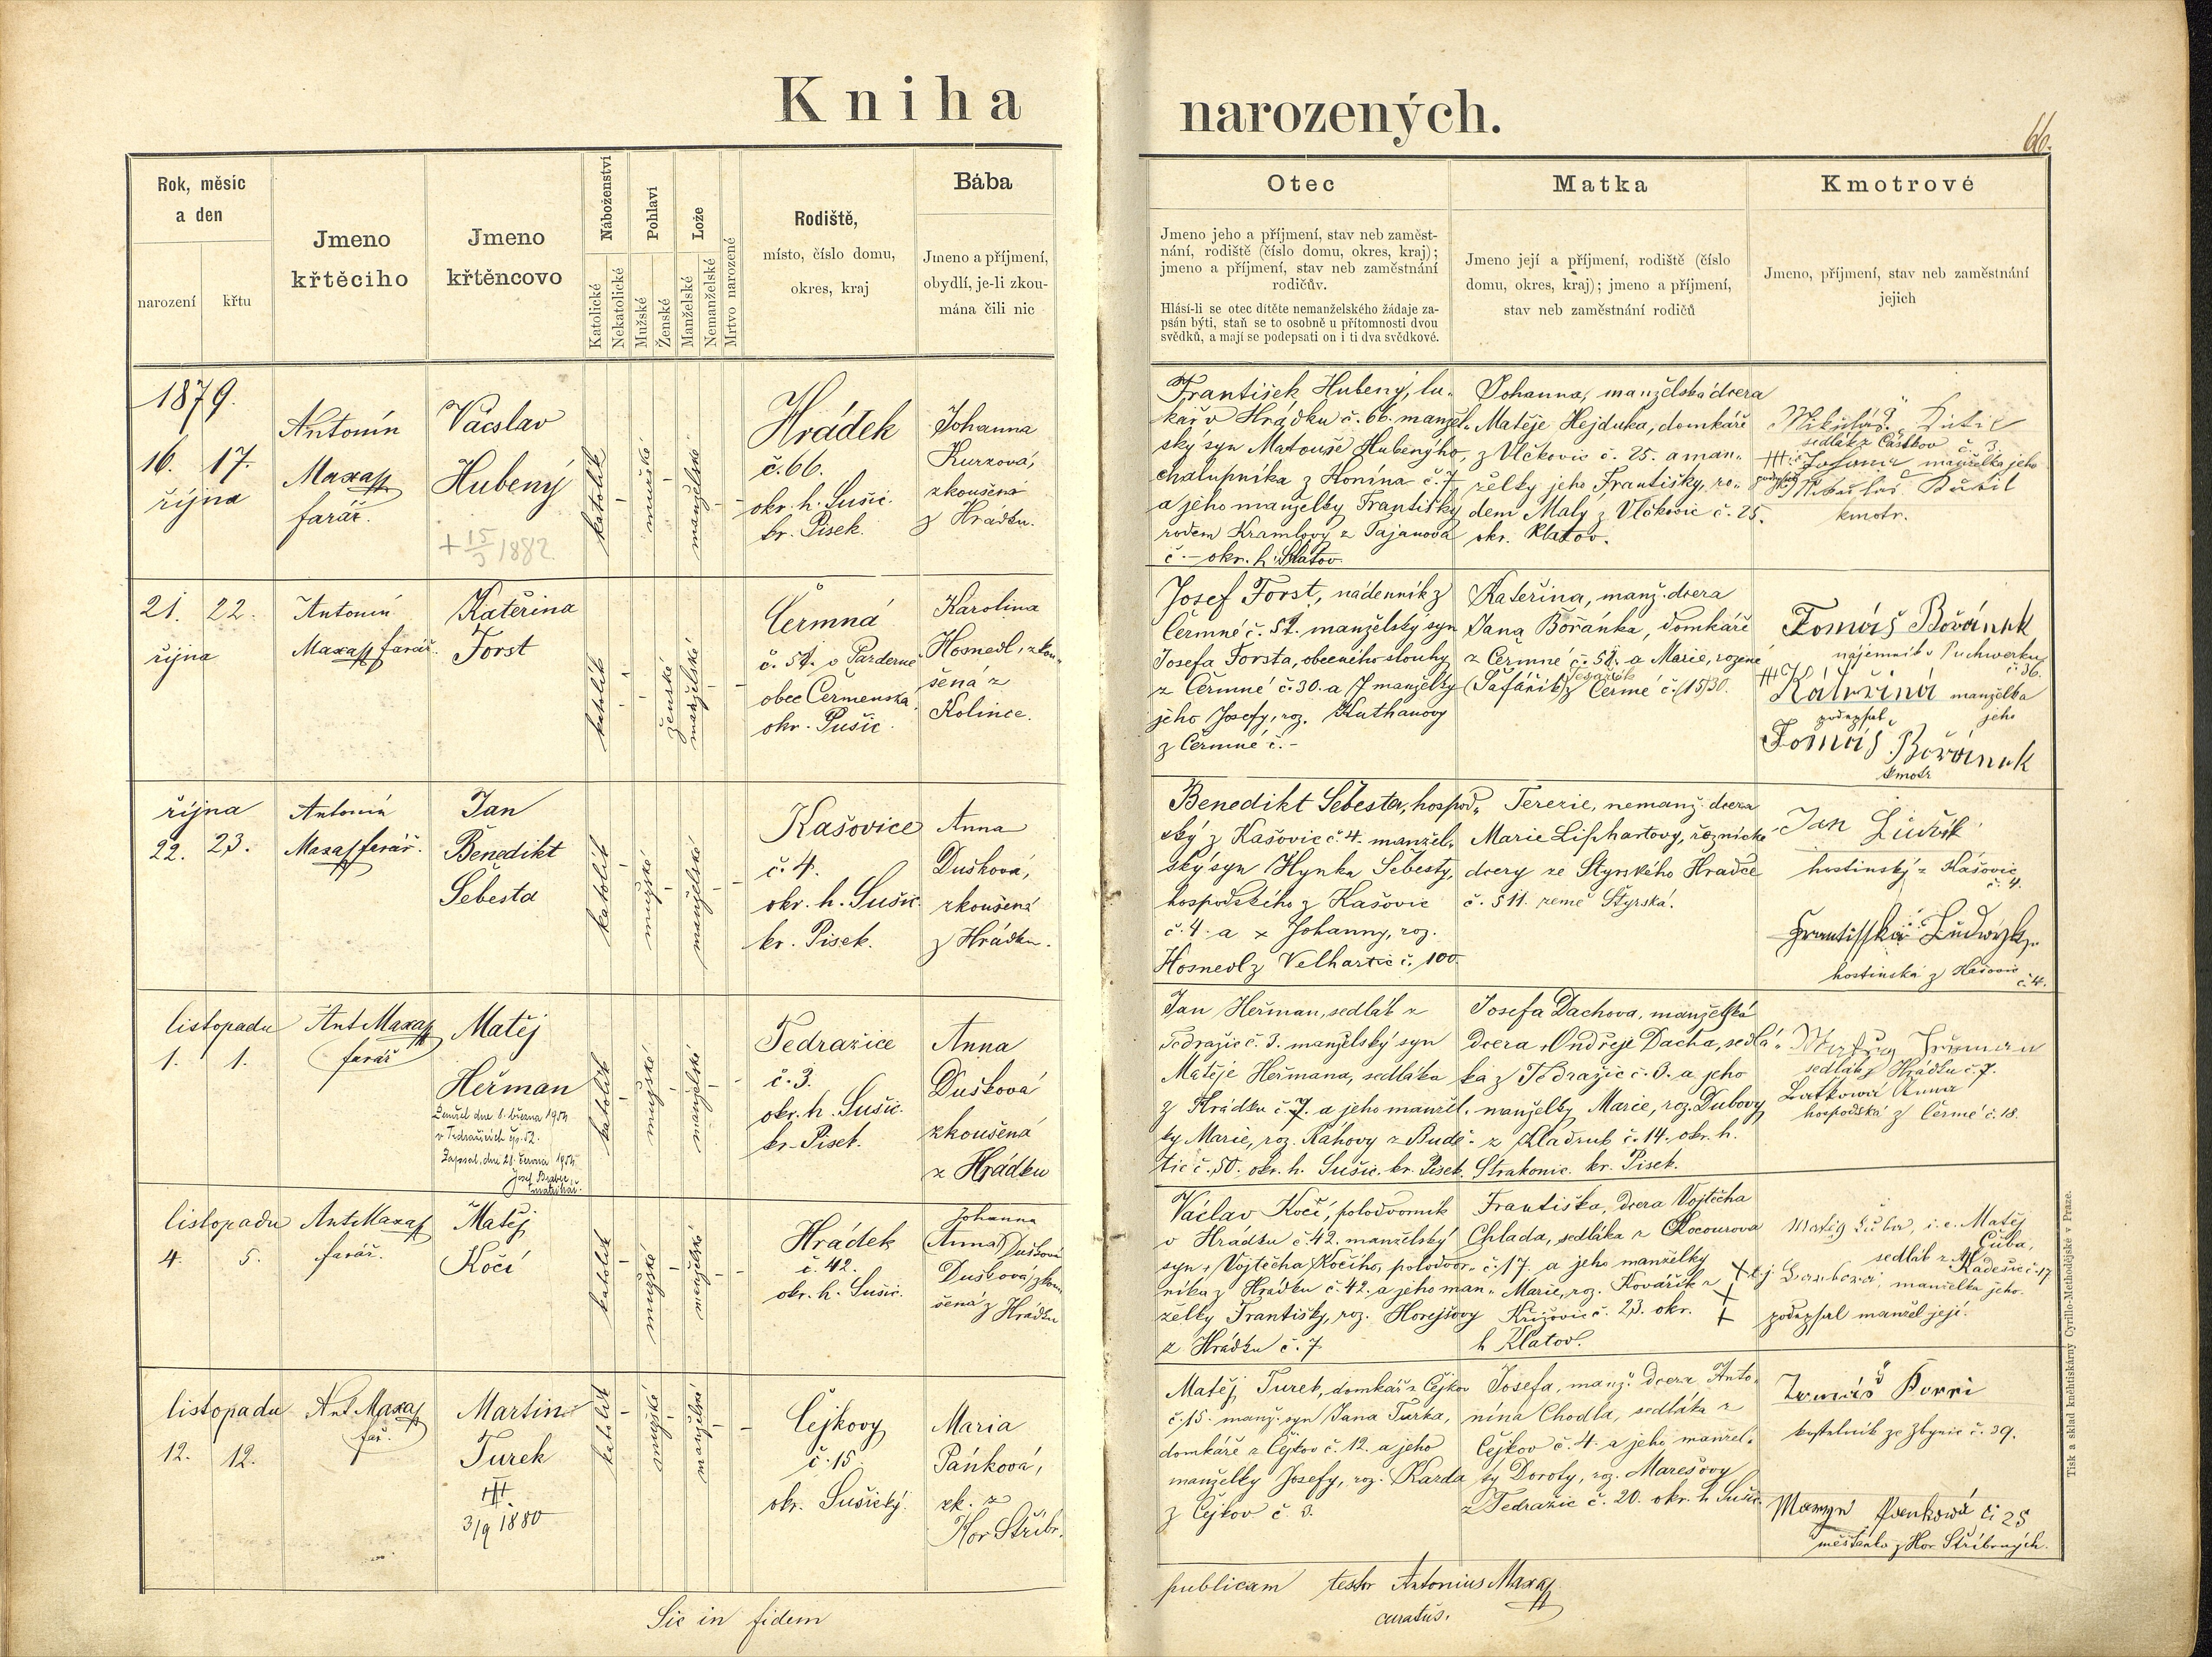 Kniha narozených.
66.
Rok, měsíc
a den
narození
křtu
Jmeno
křtěcího
Jmeno
křtěncovo
Náboženství
Katolické
Nekatolické
Pohlaví
Mužské
Ženské
Lože
Manželské
Nemanželské
Mrtvo narozené
Rodiště,
místo, číslo domu,
okres, kraj
Bába
Jmeno a příjmení,
obydlí, je-li zkou-
mána čili nic
Otec
Jmeno jeho a příjmení, stav neb zaměst-
nání, rodiště (číslo domu, okres, kraj);
jmeno a příjmení, stav neb zaměstnání
rodičův.
Hlásí-li se otec dítěte nemanželského žádaje za-
psán býti, staň se to osobně u přítomnosti dvou
svědků, a mají se podepsati on i ti dva svědkové.
Matka
Jmeno její a příjmení, rodiště (číslo
domu, okres, kraj); jmeno a příjmení,
stav neb zaměstnání rodičů
Kmotrové
Jmeno, příjmení, stav neb zaměstnání
jejich
1879.
16. 17.
října
Antonín
Maxa
farář.
Václav
Hubený
+ 15/3 1882
katolík
mužské
manželské
Hrádek
č. 66.
okr. h. Sušic.
kr. Písek.
Johanna
Kurzová,
zkoušená
z Hrádku.
František Hubený, lu-
kář v Hrádku č. 66. manžel-
ský syn Matouše Hubenýho,
chalupníka z Honína č. 7
a jeho manželky Františky
rodem Kramlovy z Tajanova
č. – okr. h. Klatov.
Johanna, manželská dcera
Matěje Hejduka, domkáře
z Vlčkovic č. 25. a man-
želky jeho Františky, ro-
dem Malý z Vlčkovic č. 25.
okr. Klatov.
Mikuláš
sedlák z Částkov č. 3.
manželka jeho
kmotr.
21. 22.
října
Antonín
Maxa farář.
Kateřina
Forst
katolík
ženské
manželské
Čermná
č. 57.
obec Čermenská
okr. Sušic.
Karolina
Hosnedl, zkou-
šená z
Kolince.
Josef Forst, nádenník z
Čermné č. 57. manželský syn
Josefa Forsta, obecního slouhy
z Čermné č. 30. a manželky
jeho Josefy, roz. Kuthanovy
z Čermné č. –
Kateřina, manž. dcera
Jana Bořánka, domkáře
z Čermné č. 57. a Marie, rozené
(Šafařík) z Čermé č. (15) 30.
Tomáš Bořánek
nájemník v Puchwerku
č. 36.
Kateřina manželka
podepsal jeho
Tomáš Bořánek
kmotr
října
22. 23.
Antonín
Maxa farář.
Jan
Benedikt
Šebesta
katolík
mužské
manželské
Kašovice
č. 4.
okr. h. Sušic.
kr. Písek.
Anna
Dušková,
zkoušená
z Hrádku.
Benedikt Šebesta, hospod-
ský z Kašovic č. 4. manžel-
ský syn Hynka Šebesty,
hospodského z Kašovic
č. 4. a Johanny, roz.
Hosnedl z Velhartic č. 100.
Terezie, nemanž. dcera
Marie Liphartovy, řeznické
dcery ze Štyrského Hradce
č. 511. země Štyrská.
Jan Ludvík
hostinský z Kašovic
č. 4.
Františka
hostinská z Kašovic
č. 4.
listopadu
1. 1.
Ant. Maxa
farář
Matěj
Heřman
Zemřel dne 6. března 1954
v Tedražicích čp. 52.
Zapsal, dne 21. června 1954
matrikář.
katolík
mužské
manželské
Tedražice
č. 3.
okr. h. Sušic.
kr. Písek.
Anna
Dušková
zkoušená
z Hrádku
Jan Heřman, sedlák z
Tedražic č. 3. manželský syn
Matěje Heřmana, sedláka
z Hrádku č. 7. a jeho manžel-
ky Marie, roz. Ráhovy z Budě-
tic č. 50. okr. h. Sušic. kr. Písek.
Josefa Dachova, manželská
dcera Ondřeje Dacha, sedlá-
ka z Tedražic č. 3. a jeho
manželky Marie, roz. Dubovy
z Kladrub č. 14. okr. h.
Strakonic. kr. Písek.
sedlák z Hrádku č. 7.
Latkowá Anna
hospodská z Čermé č. 18.
listopadu
4. 5.
Ant. Maxa
farář.
Matěj
Kočí
katolík
mužské
manželské
Hrádek
č. 42.
okr. h. Sušic.
Johanna
Anna Dušková
Dušková, zkou-
šená z Hrádku
Václav Kočí, polodvorník
v Hrádku č. 42. manželský
syn Vojtěcha Kočího, polodvor-
níka z Hrádku č. 42. a jeho man-
želky Františky, roz. Horejšovy
z Hrádku č. 7
Františka, dcera Vojtěcha
Chlada, sedláka z Kocourova
č. 17. a jeho manželky
Marie, roz. Kovářík z
Křižovic č. 23. okr.
h. Klatov.
i. e. Matěj
Čuba,
sedlák z Kadešic č. 17
manželka jeho.
podepsal manžel její.
listopadu
12. 12.
Ant. Maxa
far.
Martin
Turek
3/9 1880
katolík
mužské
manželské
Čejkovy
č. 15.
okr. Sušický.
Maria
Pánková,
zk. z
Hor Stříbr.
Matěj Turek, domkář z Čejkov
č. 15. manž. syn Jana Turka,
domkáře z Čejkov č. 12. a jeho
manželky Josefy, roz. Karda
z Čejkov č. 3.
Josefa, manž. dcera Anto-
nína Chodla, sedláka z
Čejkov č. 4. a jeho manžel-
ky Doroty, roz. Marešovy
z Tedražic č. 20. okr. h. Sušic.
Tomáš
kostelník ze Zbynic č. 39.
Panková č. 25
měšťanka z Hor Stříbrných.
Sic in fidem publicam testor Antonius Maxa
curatus.
Tisk a sklad knihtiskárny Cyrillo-Methodějské v Praze.